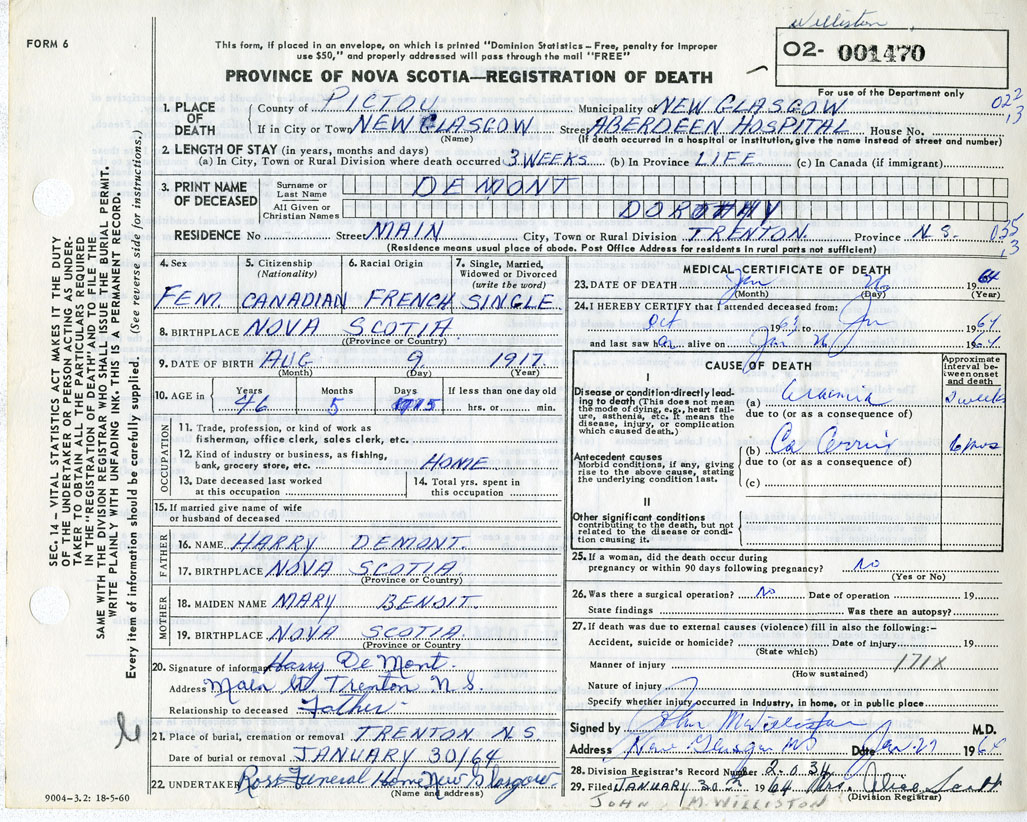 Williston
FORM 6
This form, if placed in an envelope, on which is printed "Dominion Statistics – Free, penalty for improper
use $50," and properly addressed will pass through the mail "FREE"
O2- 001470
For use of the Department only
PROVINCE OF NOVA SCOTIA—REGISTRATION OF DEATH
022
13
1. PLACE OF DEATH
County of PICTOU Municipality of NEW GLASGOW
If in City or Town NEW GLASGOW Street ABERDEEN HOSPITAL House No.
(Name) (If death occurred in a hospital or institution, give the name instead of street and number)
2. LENGTH OF STAY (in years, months and days)
(a) In City, Town or Rural Division where death occurred 3 WEEKS (b) In Province LIFE (c) In Canada (if immigrant)
3. PRINT NAME OF DECEASED
Surname or Last Name DEMONT
All Given or Christian Names DOROTHY
RESIDENCE No Street MAIN City, Town or Rural Division TRENTON Province N.S. 035
13
(Residence means usual place of abode. Post Office Address for residents in rural parts not sufficient)
4. Sex FEM
5. Citizenship (Nationality) CANADIAN
6. Racial Origin FRENCH
7. Single, Married, Widowed or Divorced (write the word) SINGLE
8. BIRTHPLACE NOVA SCOTIA
(Province or Country)
9. DATE OF BIRTH AUG 9 1917
(Month) (Day) (Year)
10. AGE in Years 46 Months 5 Days 15 If less than one day old hrs. or min.
OCCUPATION
11. Trade, profession or kind of work as
fisherman, office clerk, sales clerk, etc.
12. Kind of industry or business, as fishing,
bank, grocery store, etc. HOME
13. Date deceased last worked
at this occupation
14. Total yrs. spent in
this occupation
15. If married give name of wife
or husband of deceased
FATHER
16. NAME HARRY DEMONT
17. BIRTHPLACE NOVA SCOTIA
(Province or Country)
MOTHER
18. MAIDEN NAME MARY BENOIT
19. BIRTHPLACE NOVA SCOTIA
(Province or Country
20. Signature of informant Harry DeMont.
Address Main St. Trenton N.S.
Relationship to deceased Father
21. Place of burial, cremation or removal TRENTON N.S.
Date of burial or removal JANUARY 30/64
22. UNDERTAKER Ross Funeral Home New Glasgow
(Name and address)
9004–3.2: 18-5-60
SEC. 14 – VITAL STATISTICS ACT MAKES IT THE DUTY
OF THE UNDERTAKER OR PERSON ACTING AS UNDER-
TAKER TO OBTAIN ALL THE PARTICULARS REQUIRED
IN THE "REGISTRATION OF DEATH" AND TO FILE THE
SAME WITH THE DIVISION REGISTRAR WHO SHALL ISSUE THE BURIAL PERMIT.
WRITE PLAINLY WITH UNFADING INK. THIS IS A PERMANENT RECORD.
Every item of information should be carefully supplied. (See reverse side for instructions.)
MEDICAL CERTIFICATE OF DEATH
23. DATE OF DEATH Jan 26 1964
(Month) (Day) (Year)
24. I HEREBY CERTIFY that I attended deceased from:
Oct 1963 to Jan 1964
and last saw her alive on Jan 26 1964
CAUSE OF DEATH
Approximate interval between onset and death
I
Disease or condition directly lead-
ing to death (This does not mean
the mode of dying, e.g., heart fail-
ure, asthenia, etc. It means the
disease, injury, or complication
which caused death.)
(a) Uraemia 2 weeks
due to (or as a consequence of)
(b) Ca Cervix 6 mos
due to (or as a consequence of)
(c)
Antecedent causes
Morbid conditions, if any, giving
rise to the above cause, stating
the underlying condition last.
II
Other significant conditions
contributing to the death, but not
related to the disease or condi-
tion causing it.
25. If a woman, did the death occur during
pregnancy or within 90 days following pregnancy? No
(Yes or No)
26. Was there a surgical operation? No Date of operation 19
State findings Was there an autopsy?
27. If death was due to external causes (violence) fill in also the following:–
Accident, suicide or homicide? Date of injury 19
(State which)
171X
Manner of injury
(How sustained)
Nature of injury
Specify whether injury occurred in Industry, in home, or in public place
Signed by John M Williston M.D.
Address New Glasgow NS Date Jan 27 1964
28. Division Registrar's Record Number 2034
29. Filed JANUARY 30 1964 Mrs. Alice Scott
(Division Registrar)
JOHN M. WILLISTON